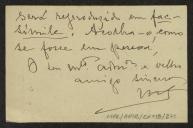 será reproduzido em fac-
símile. Acolha-o como
se fosse em pessoa,
O seu mto admor e velho
amigo sincero